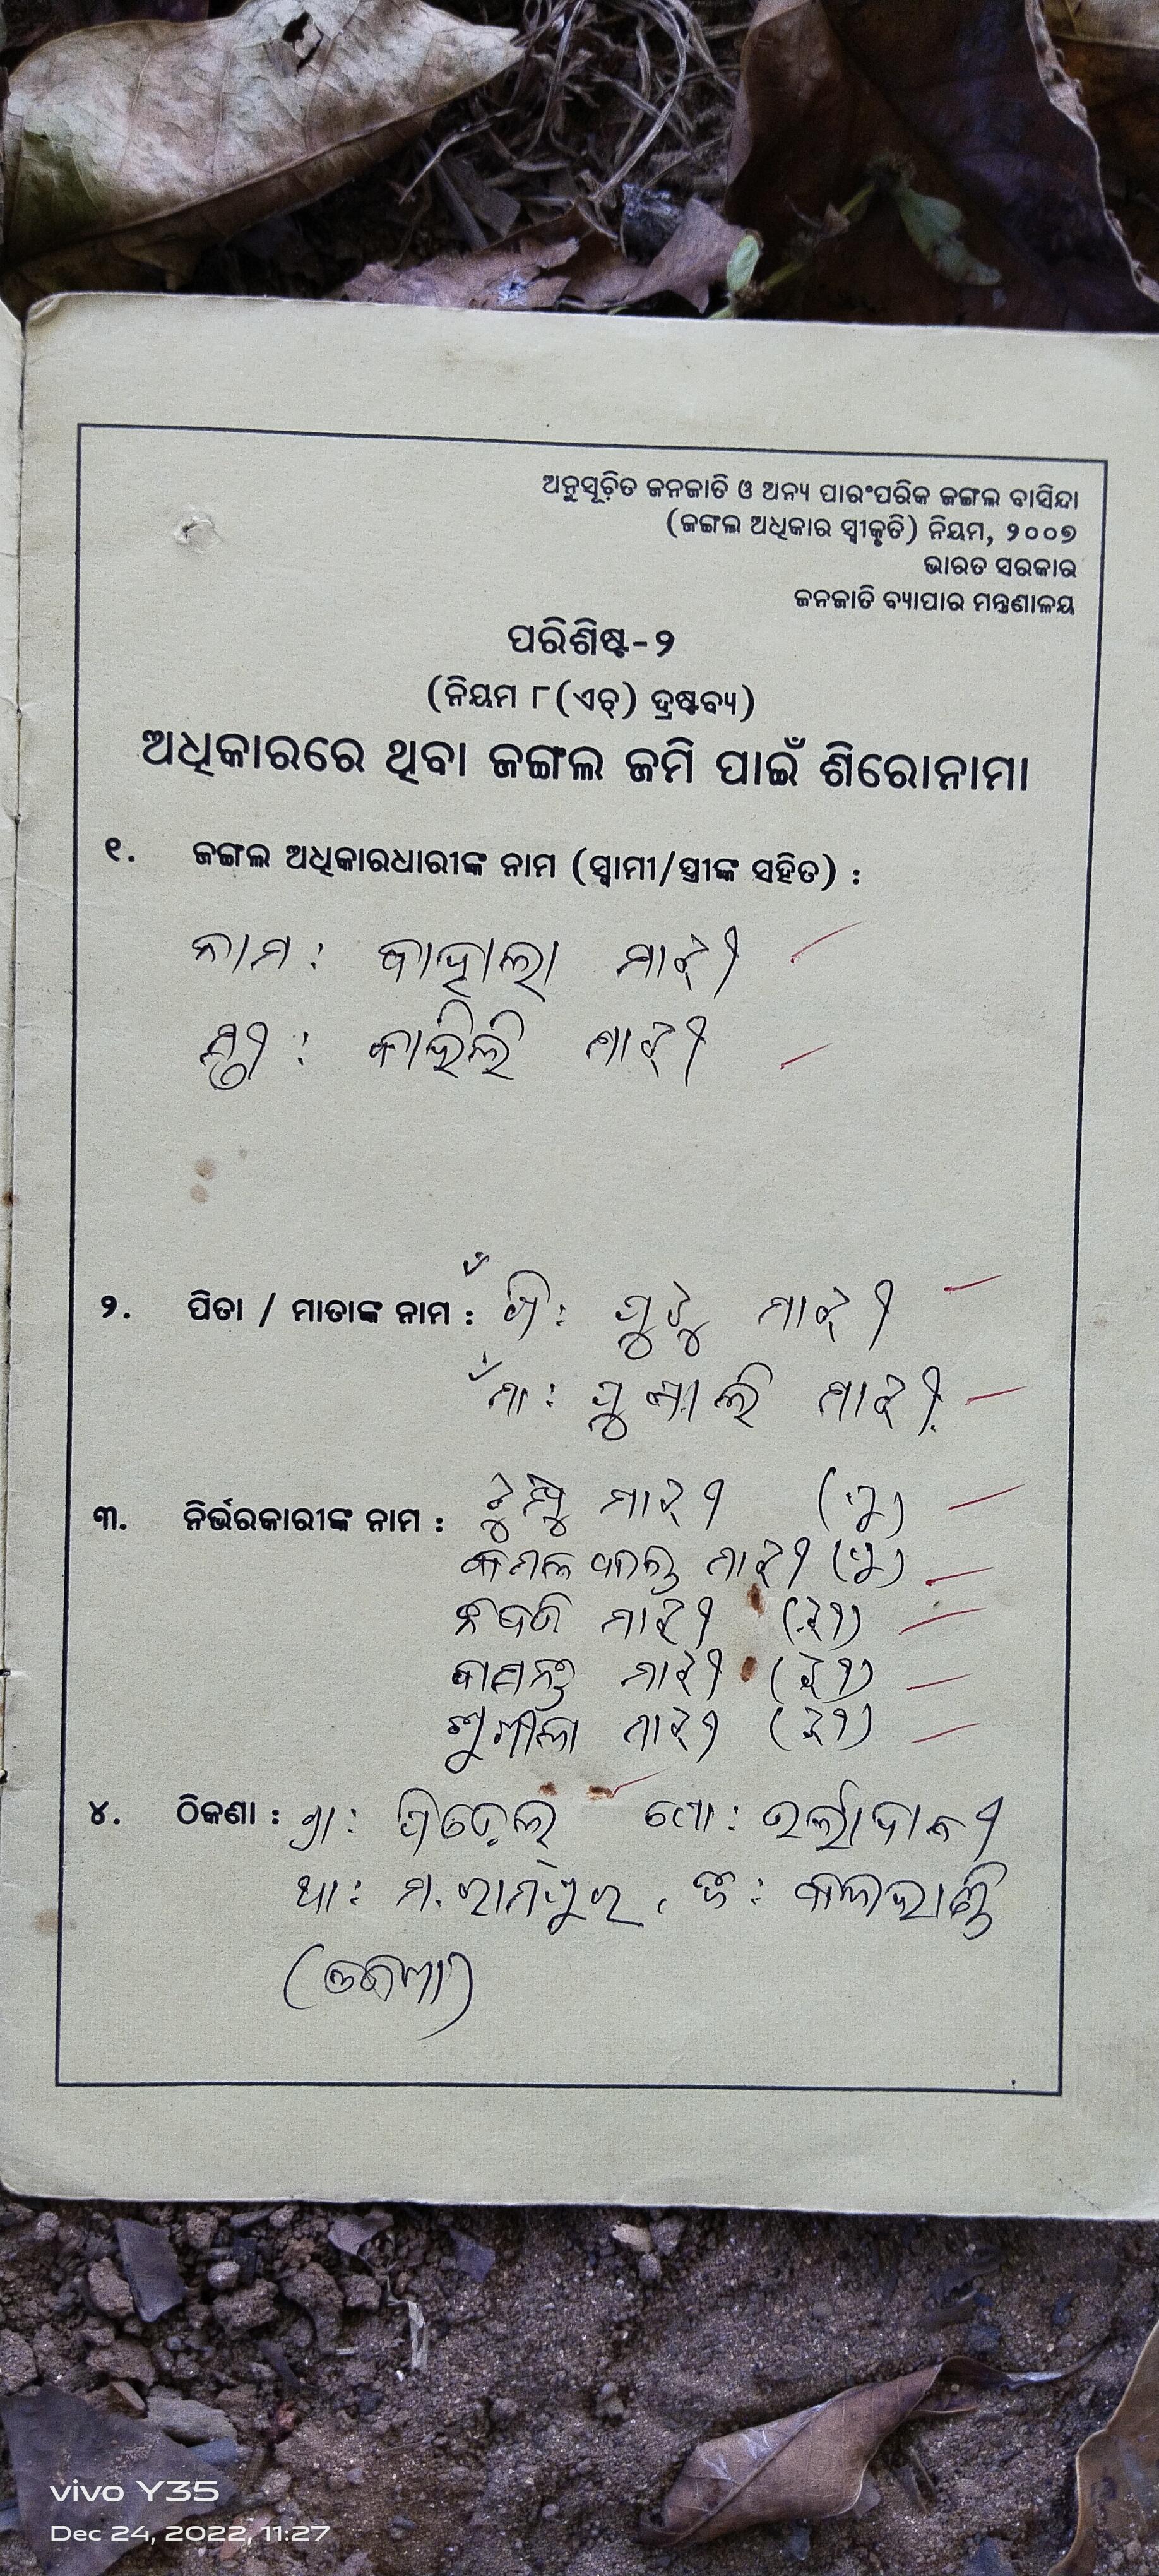 ଅନୁସୂଚିତ ଜନଜାତି ଓ ଅନ୍ୟ ପାରଂପରିକ ଜଙ୍ଗଲ ବାସିନ୍ଦା
(ଜଙ୍ଗଲ ଅଧିକାର ସ୍ୱୀକୃତି) ନିୟମ, ୨୦୦୭
ଭାରତ ସରକାର
ଜନଜାତି ବ୍ୟାପାର ମନ୍ତ୍ରଣାଳୟ
ପରିଶିଷ୍ଟ-୨
(ନିୟମ ୮(ଏଚ୍) ଦ୍ରଷ୍ଟବ୍ୟ)
ଅଧିକାରରେ ଥିବା ଜଙ୍ଗଲ ଜମି ପାଇଁ ଶିରୋନାମା
୧. ଜଙ୍ଗଲ ଅଧିକାରଧାରୀଙ୍କ ନାମ (ସ୍ୱାମୀ/ସ୍ତ୍ରୀଙ୍କ ସହିତ) :
ନାମ : ମାଝୀ
ସ୍ତ୍ରୀ : ମାଝୀ
୨. ପିତା / ମାତାଙ୍କ ନାମ : ପି: ଗୁଡୁ ମାଝୀ
ମା: ମାଝୀ
୩. ନିର୍ଭରକାରୀଙ୍କ ନାମ : ମାଝୀ (ପୁ)
ମାଝୀ (ପୁ)
ମାଝୀ (ଝୀ)
ବାସନ୍ତୀ ମାଝୀ (ଝୀ)
ସୁଶୀଳା ମାଝୀ (ଝୀ)
୪. ଠିକଣା : ଗ୍ରା: ପୋ:
ଥା: ମ. ରାମପୁର, ଜି: କଳାହାଣ୍ଡି
(ଓଡିଶା)
vivo Y35
Dec 24, 2022, 11:27